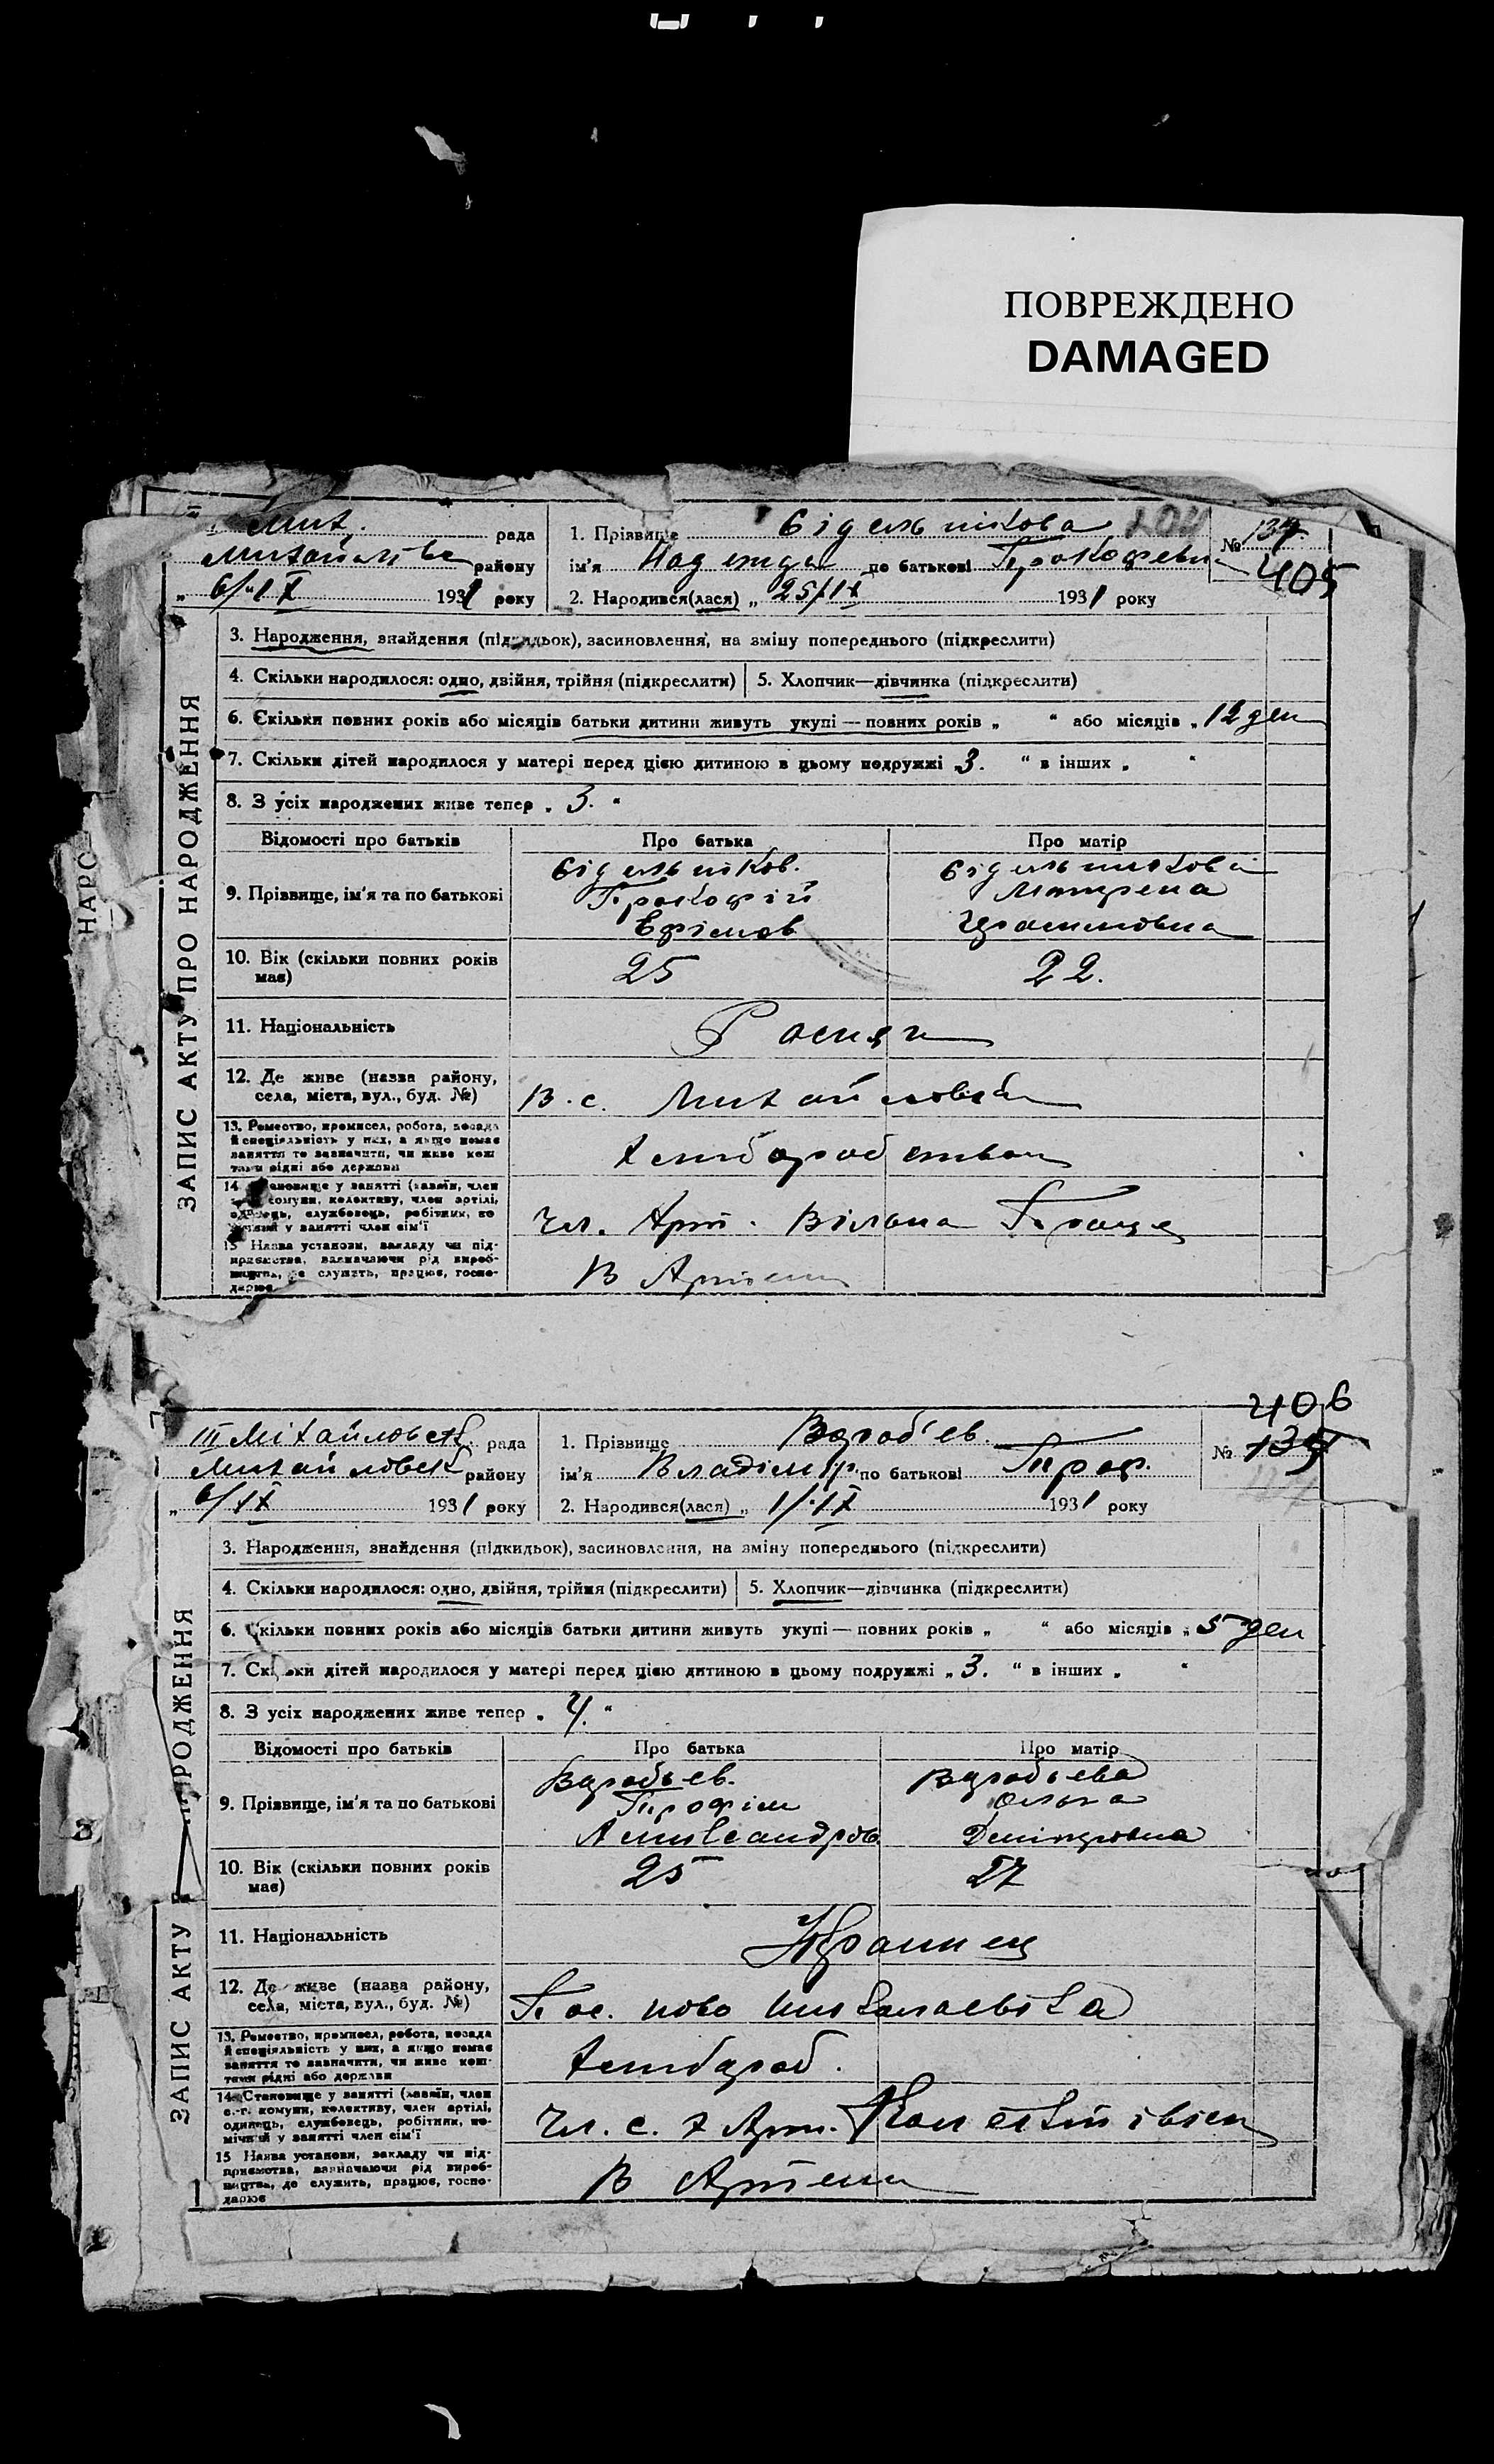 ПОВРЕЖДЕНО
DAMAGED
Мих. рада
району
6/IX 1931 року
1. Прізвище Сідельнікова
ім'я Надежда по батькові Прокофевна
2. Народився(лася) „ 25/IX 1931 року
№ 134
405
НАРС
ЗАПИС АКТУ ПРО НАРОДЖЕННЯ
3. Народження, знайдення (підкидьок), засиновлення, на зміну попереднього (підкреслити)
4. Скільки народилося: одно, двійня, трійня (підкреслити) 5. Хлопчик—дівчинка (підкреслити)
6. Скільки повних років або місяців батьки дитини живуть укупі — повних років „ “ або місяців „ 12 ден
7. Скільки дітей народилося у матері перед цією дитиною в цьому подружжі „ 3. “ в інших „ “
8. З усіх народжених живе тепер „ 3. “
Відомості про батьків Про батька Про матір
9. Прізвище, ім'я та по батькові
Сідельніков. Сідельнікова
Прокофій Мотрена
Ефімов
10. Вік (скільки повних років має) 25 22.
11. Національність
12. Де живе (назва району, села, міста, вул., буд. №) В. с. Михайловкі
13. Ремество, промисел, робота, посада
й спеціяльність у них, а якщо немає
заняття то зазначити, чи живе кош
тами рідні або держави
Хлиборобством
14. Становище у занятті (хазяїн, член
комуни, колективу, член артілі,
одинець, службовець, робітник, по
мічний у занятті член сім'ї
Чл. Арт. Вільна Праця
15 Назва установи, закладу чи під-
приємства, зазначаючи рід вироб-
ництва, де служить, працює, госпо-
дарює
В Артели
406
III Міхайловск. рада
Михайловск району
6/IX 1931 року
1. Прізвище Вороб'ев.
ім'я Владімір. по батькові Проф.
2. Народився(лася) „ 1/IX 1931 року
№ 135
ЗАПИС АКТУ НАРОДЖЕННЯ
3. Народження, знайдення (підкидьок), засиновлення, на зміну попереднього (підкреслити)
4. Скільки народилося: одно, двійня, трійня (підкреслити) 5. Хлопчик—дівчинка (підкреслити)
6. Скільки повних років або місяців батьки дитини живуть укупі — повних років „ “ або місяців „ 5 ден
7. Скільки дітей народилося у матері перед цією дитиною в цьому подружжі „ 3. “ в інших „ “
8. З усіх народжених живе тепер „ 4. “
Відомості про батьків Про батька Про матір
9. Прізвище, ім'я та по батькові
Воробьев. Воробьева
Трофім Ольга
Александров Дмітровна
10. Вік (скільки повних років має) 25 27
11. Національність Украинец
12. Де живе (назва району, села, міста, вул., буд. №) Пос. Ново
13. Ремество, промисел, робота, посада
й спеціяльність у них, а якщо немає
заняття то зазначити, чи живе кош-
тами рідні або держави
Хлибороб.
14. Становище у занятті (хазяїн, член
с.-г. комуни, колективу, член артілі,
одинець, службовець, робітник, по-
мічний у занятті член сім'ї
Чл. с. х Арт.
15 Назва установи, закладу чи під-
приємства, зазначаючи рід вироб-
ництва, де служить, працює, госпо-
дарює
В Артели